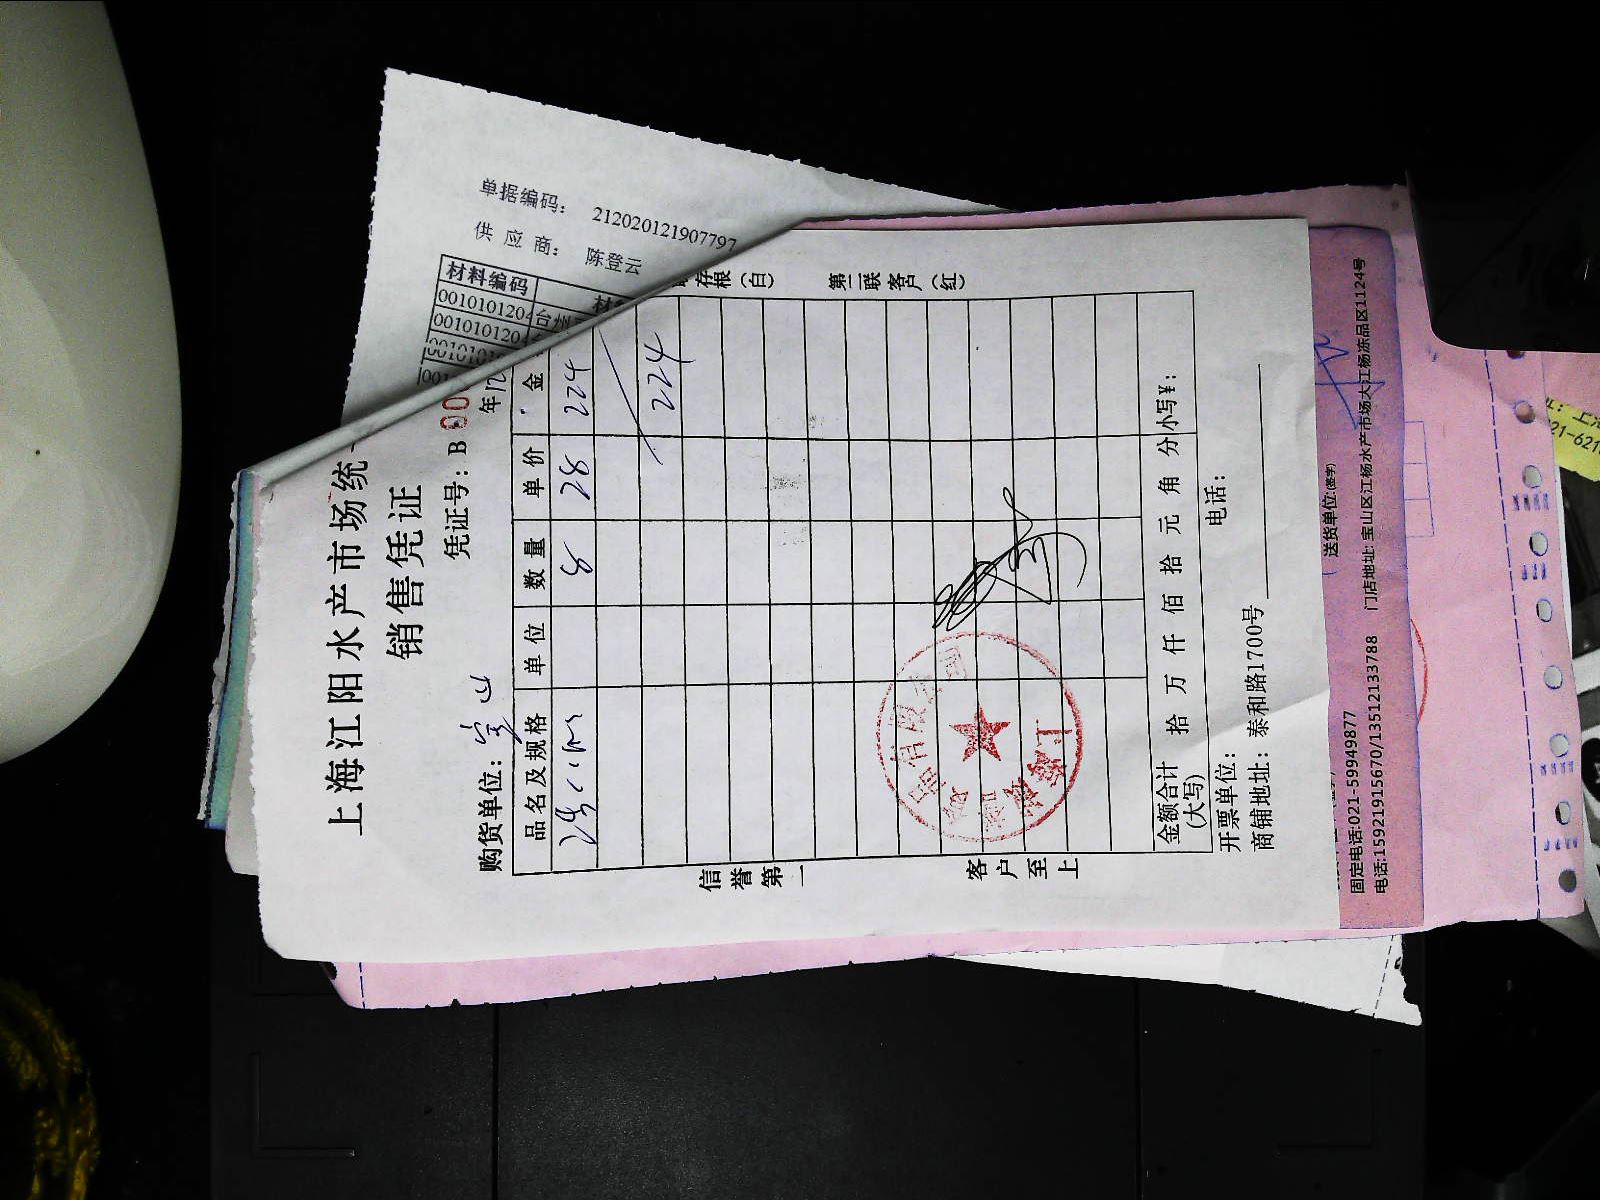 单据编码： 212020121907797
供 应 商： 陈登云
材料编码
001010120
台州
001010120
上海江阳水产市场统
销售凭证
凭证号：B 00
购货单位：宝山
年12
品名及规格 单位 数量 单价 金
8 28 224
224
存根（白） 第二联客户（红）
信誉第一 客户至上
金额合计（大写） 拾 万 仟 佰 拾 元 角 分 小写¥：
开票单位： 电话：
商铺地址：泰和路1700号
送货单位(签字)
固定电话:021-59949877 门店地址: 宝山区江杨水产市场大江杨冻品区1124号
电话:15921915670/13512133788
21-621